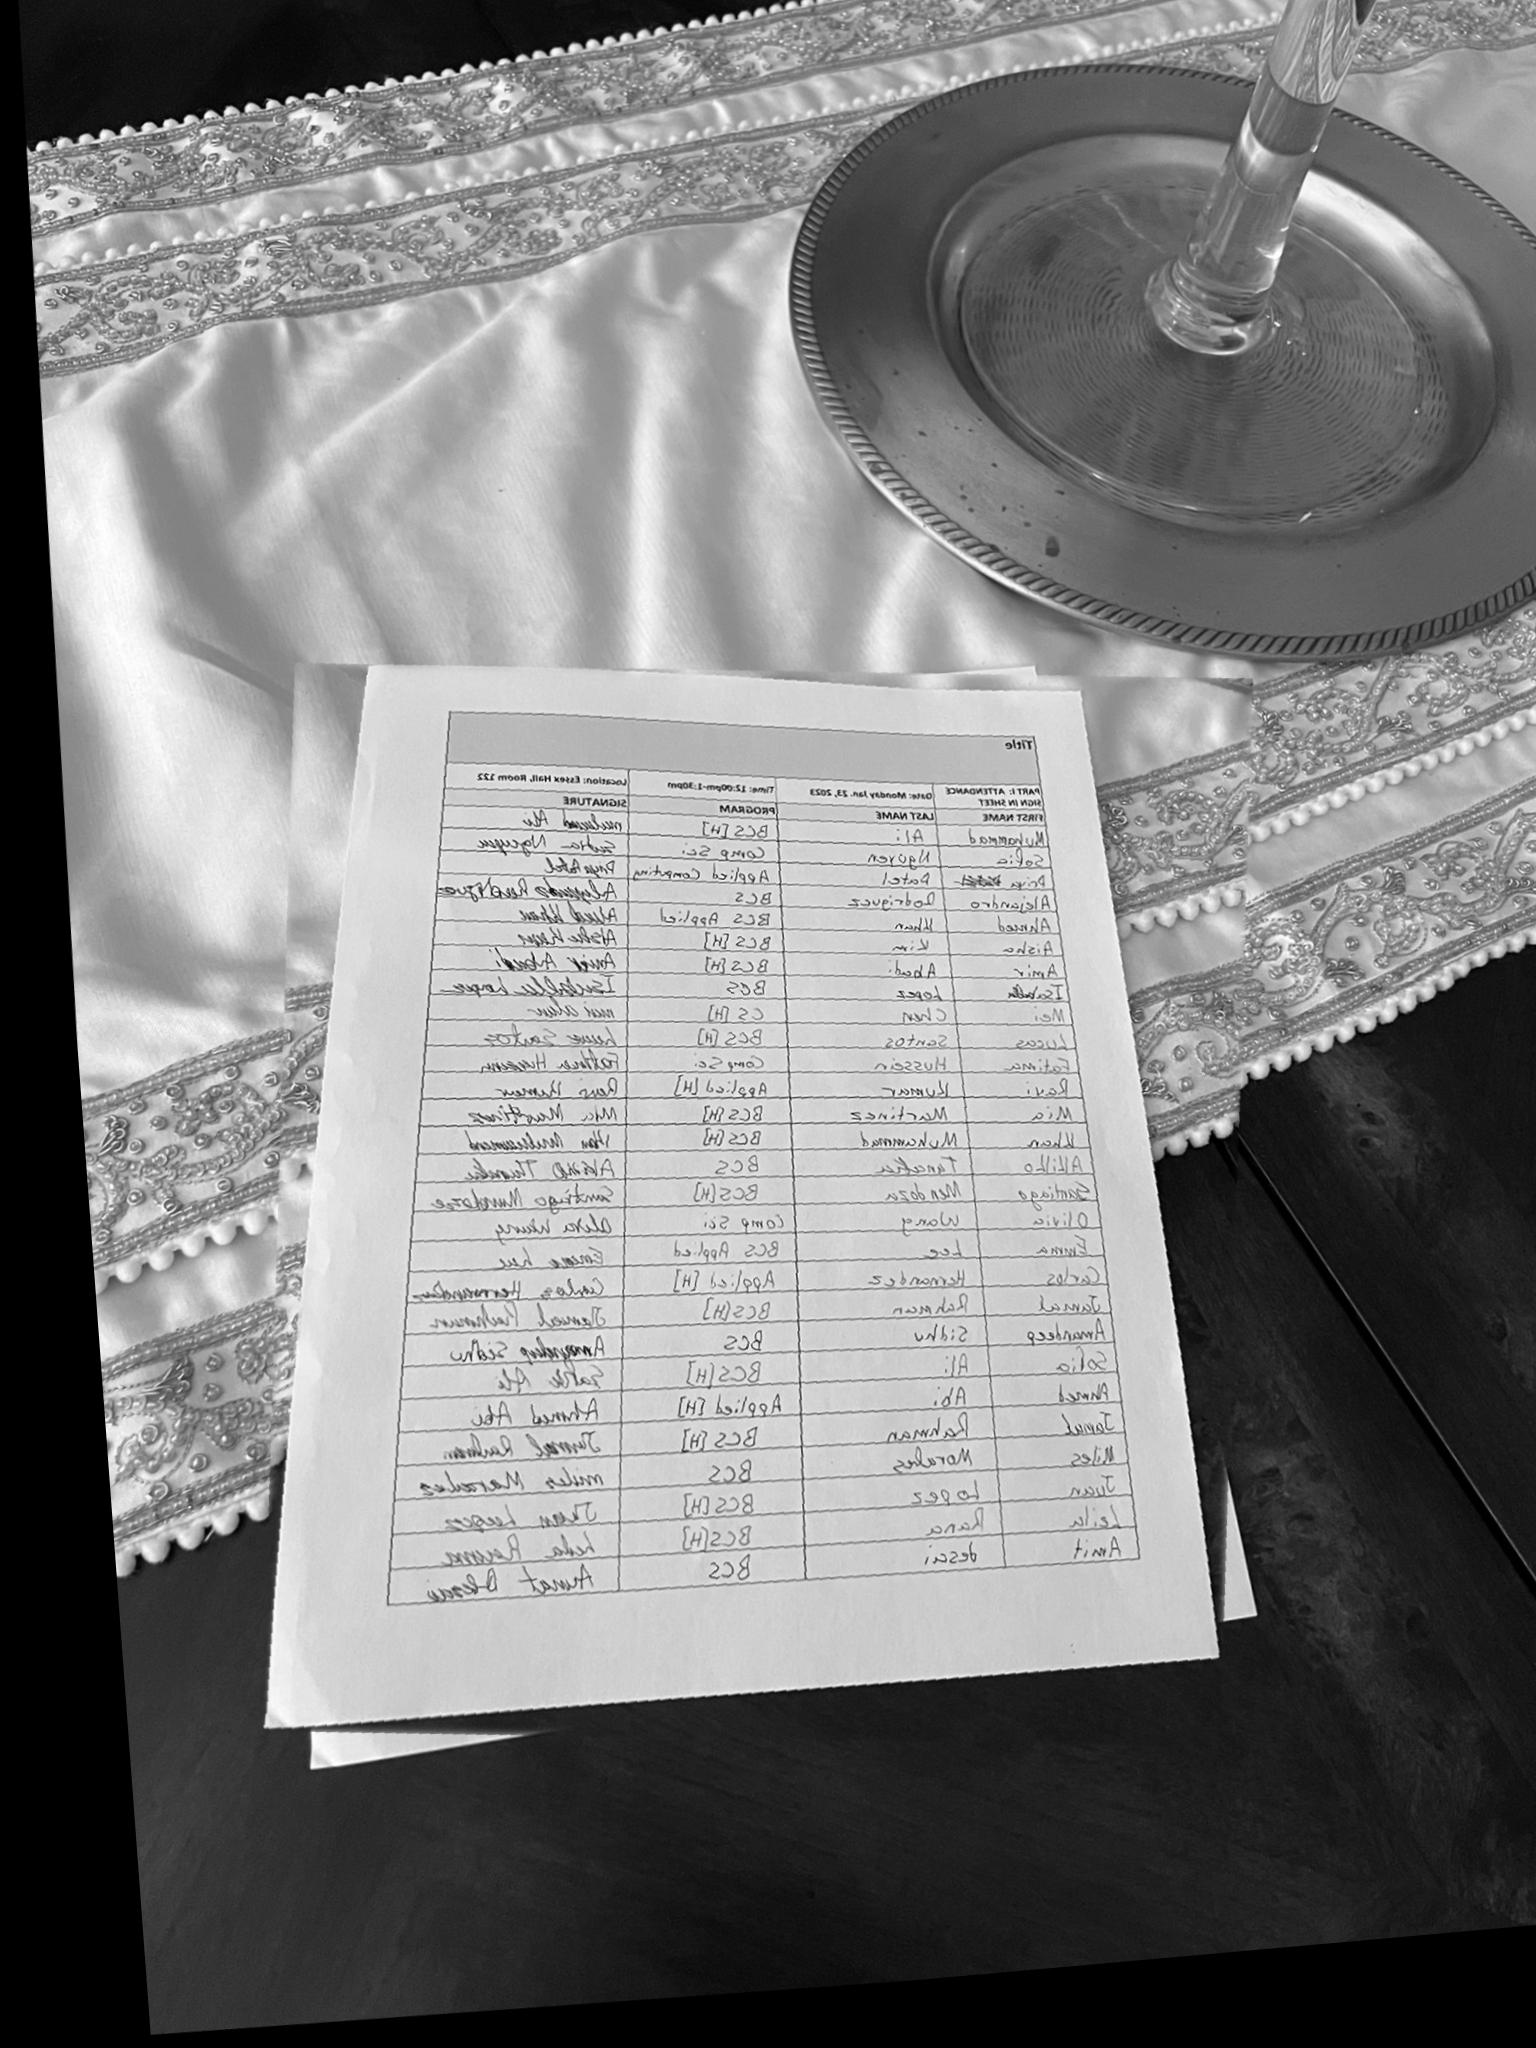 Title
PART I: ATTENDANCE SIGN IN SHEET Date: Monday Jan. 23, 2023 Time: 12:00pm-1:30pm Location: Essex Hall, Room 122
FIRST NAME LAST NAME PROGRAM SIGNATURE
Muhammad Ali BCS [H] Ali
Sofia Nguyen Comp Sci Sofia Nguyen
Priya Patel Applied Computing Priya Patel
Alejandro Rodriguez BCS Alejandro Rodriguez
Ahmed Khan BCS Applied Ahmed Khan
Aisha Kim BCS [H] Aisha
Amir Abadi BCS [H] Amir Abadi
Isabella Lopez BCS Isabella Lopez
Mei Chen CS [H]
Lucas Santos BCS [H] Santos
Fatima Hussein Comp Sci Fatima
Ravi Kumar Applied [H] Ravi Kumar
Mia Martinez BCS [H] Mia Martinez
Khan Muhammad BCS [H] Khan Muhammad
BCS
Santiago Mendoza BCS [H] Santiago
Olivia Wang Comp Sci
Emma Lee BCS Applied
Carlos Hernandez Applied [H] Carlos Hernandez
Jamal Rahman BCS [H] Jamal Rahman
Amandeep Sidhu BCS Sidhu
Sofia Ali BCS [H] Ali
Ahmed Abi Applied [H] Ahmed Abi
Jamal Rahman BCS [H] Jamal Rahman
Miles Morales BCS miles
Juan Lopez BCS [H] Juan
Leila Rana BCS [H]
Amit desai BCS